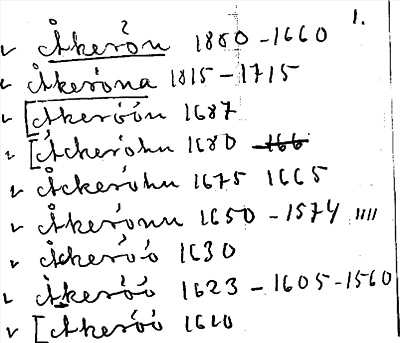 1.
v Åkerön 1880 - 1660
v Åkeröna 1815 - 1715
v [Åkeröön 1687
v [Åckeröhn 1680 166
v Åckeröhn 1675 1665
v Åkerönn 1650 - 1574 ıııı
v Åkeröö 1630
v Åkeröö 1623 - 1605 - 1560
v [Åkeröö 1610